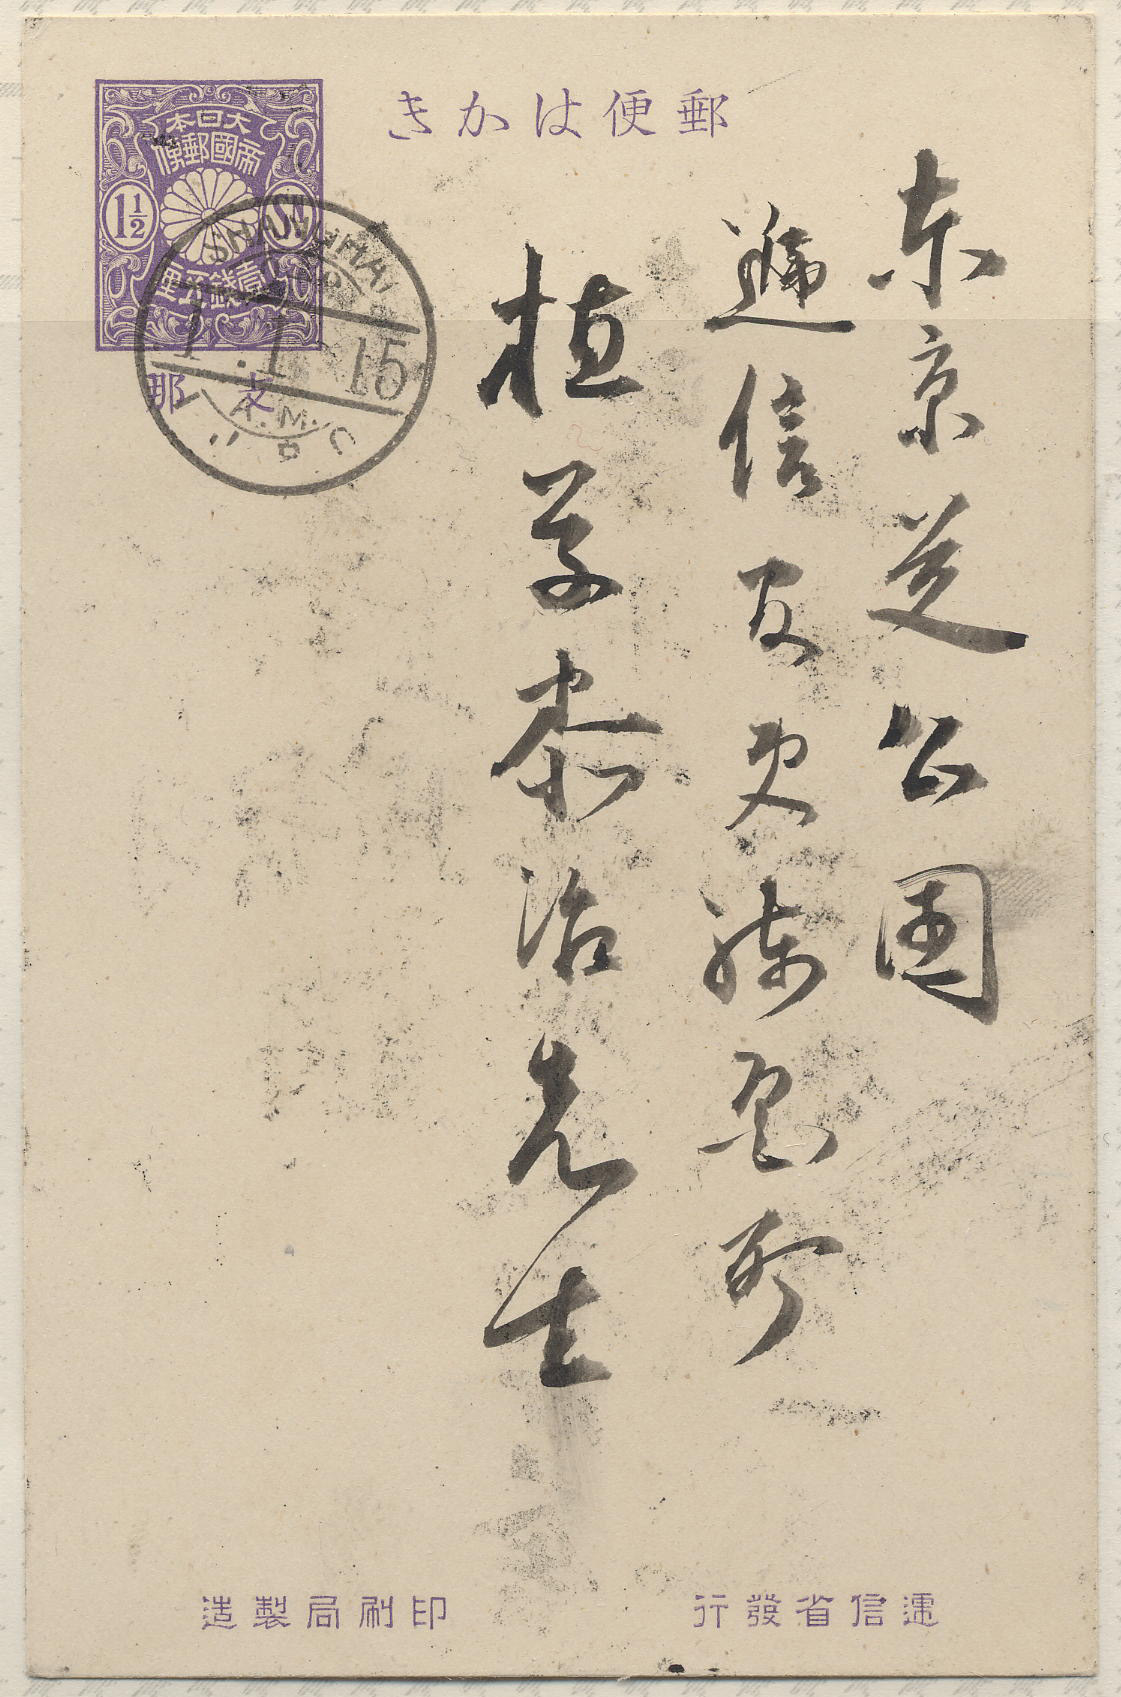 郵便はかき
大日本
帝國郵便
1½
Sn
壹錢五厘
支那
SHANGHAI
1.1.15
東京芝公園
遞信官吏練習所
植草泰治先生
遞信省發行
印刷局製造